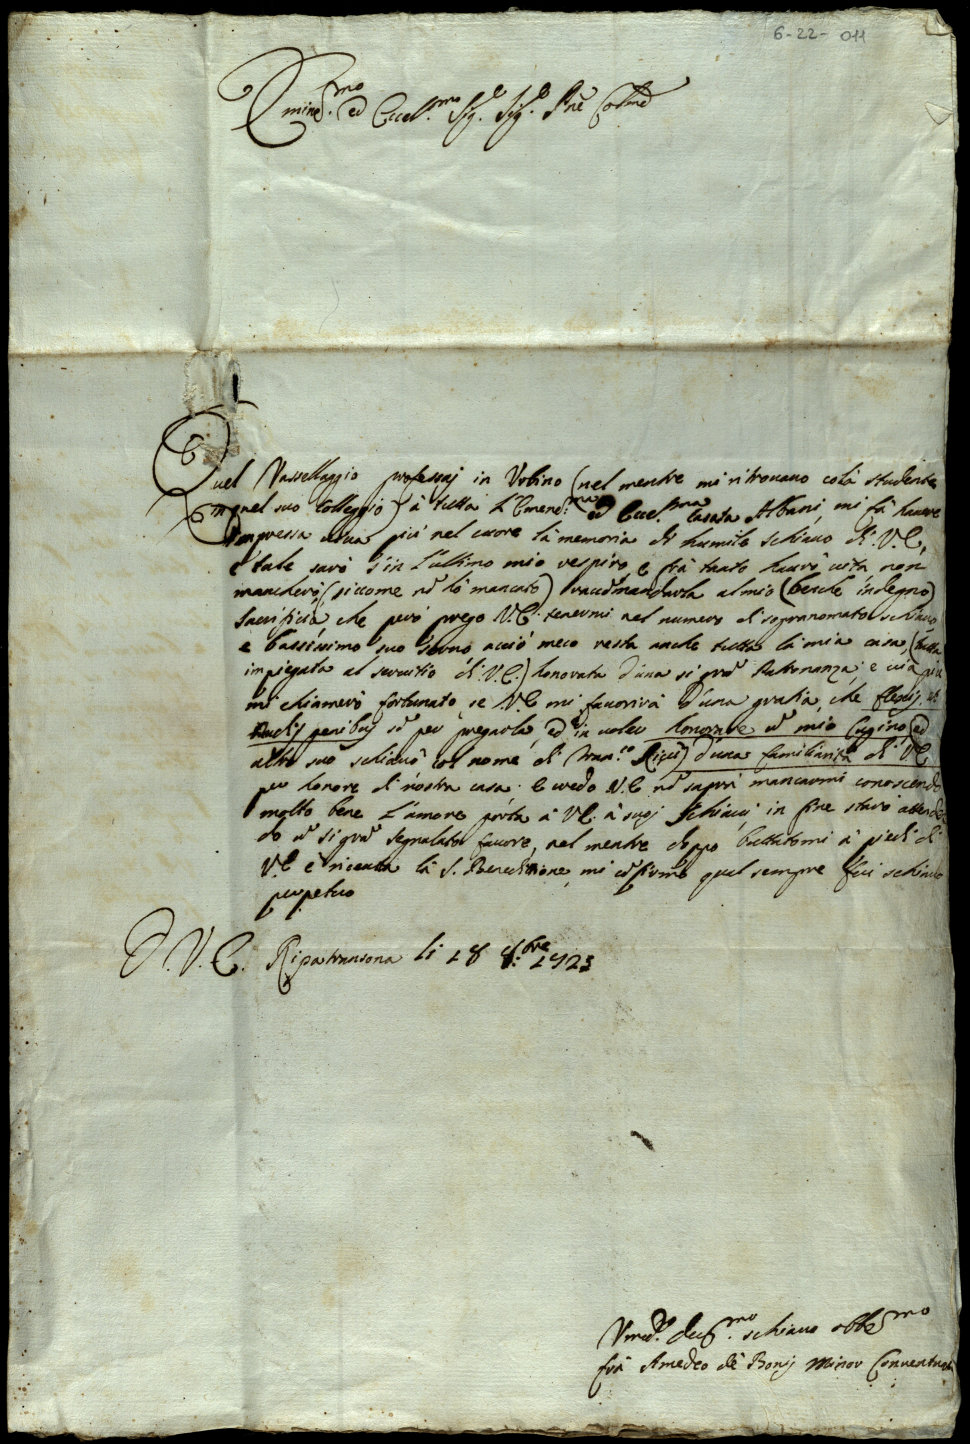 6-22-011
Emine.mo ed Eccel.mo Sig.e Sig.e Pne Colmo
Quel Vassellaggio professaj in Urbino (nel mentre mi ritrovavo colà studente
nel suo Colleggio) à tutta l'Emend.ma ed Eccel.ma Casata Albani, mi fà havere
impressa più nel cuore là memoria di humile schiavo di V.E.,
e tale sarò s'in l'ultimo mio respiro, e frà tanto havrò vita, non
mancherò (siccome nō hò mancato) raccōmandarla al mio (benche indegno)
Sacrificio, che però prego V.E. tenermi nel numero di sopranomato schiavo
e bassissimo suo servo, acciò meco resta anche tutta là mia casa, (tutta
impiegata al servitio di V.E.) honorata d'una si grā Patronanza; e via più
mi chiamerò fortunato, se V.E. mi favorirà d'una gratia, che flexij, et
nudis genibus sō per pregarla, ed in voler honorare ū mio Cugino, (ed
altro suo schiavo col nome di Fran.co Ricci) d'una familiarità di V.E.
per honore di nostra casa. E credo V.E. nō saprà mancarmi conoscendo
molto bene l'amore porta à V.E. à suoj schiavi, in fine starò attenden
do ū si grā segnalato favore, nel mentre doppo buttatomi à piedi di
V.E. e ricevuta là S. Benedittione, mi cōfirmo qual sempre fui schiavo
perpetuo
D.V.E. Ripatransona li 18 8.bre 1723
Umil.o dev.mo schiavo obb.mo
frà Amedeo dè Bonij Minor Conventuale